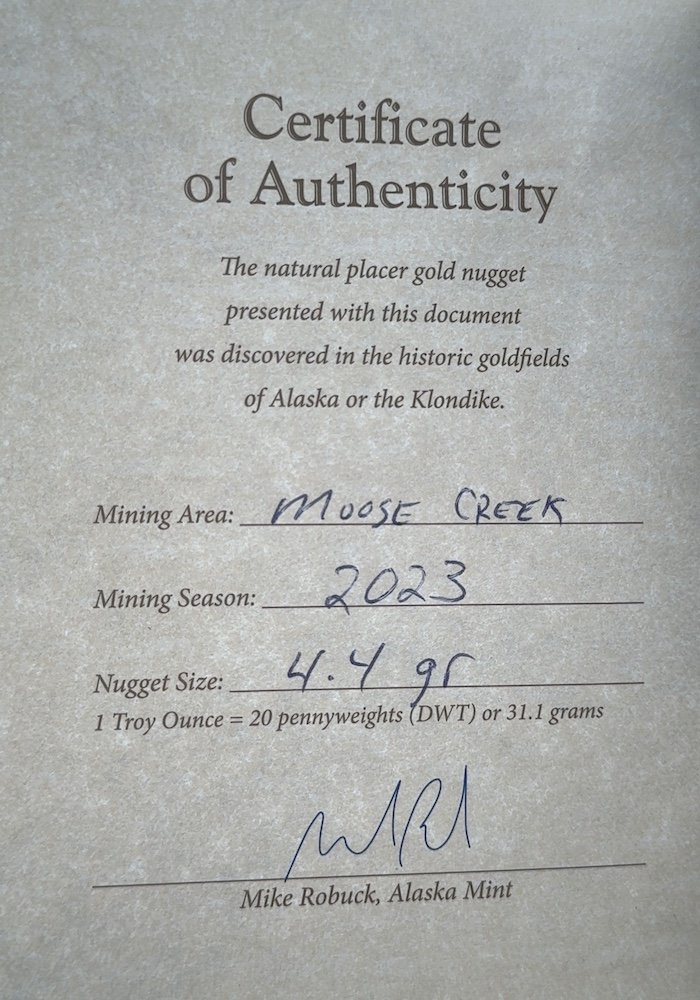 Certificate
of Authenticity
The natural placer gold nugget
presented with this document
was discovered in the historic goldfields
of Alaska or the Klondike.
Mining Area: MOOSE CREEK
Mining Season: 2023
Nugget Size: 4.4 gr
1 Troy Ounce = 20 pennyweights (DWT) or 31.1 grams
Mike Robuck, Alaska Mint